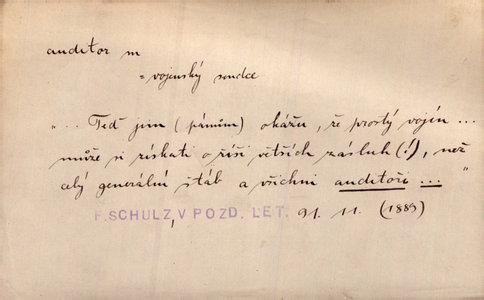 auditor m
= vojenský soudce
"... Teď jim (pánům) okážu, že prostý vojín ...
může si získati o říši větších zásluh (!), než
celý generální štáb a všichni auditoři ... "
F. SCHULZ, V POZD. LET. 91. 11. (1889)